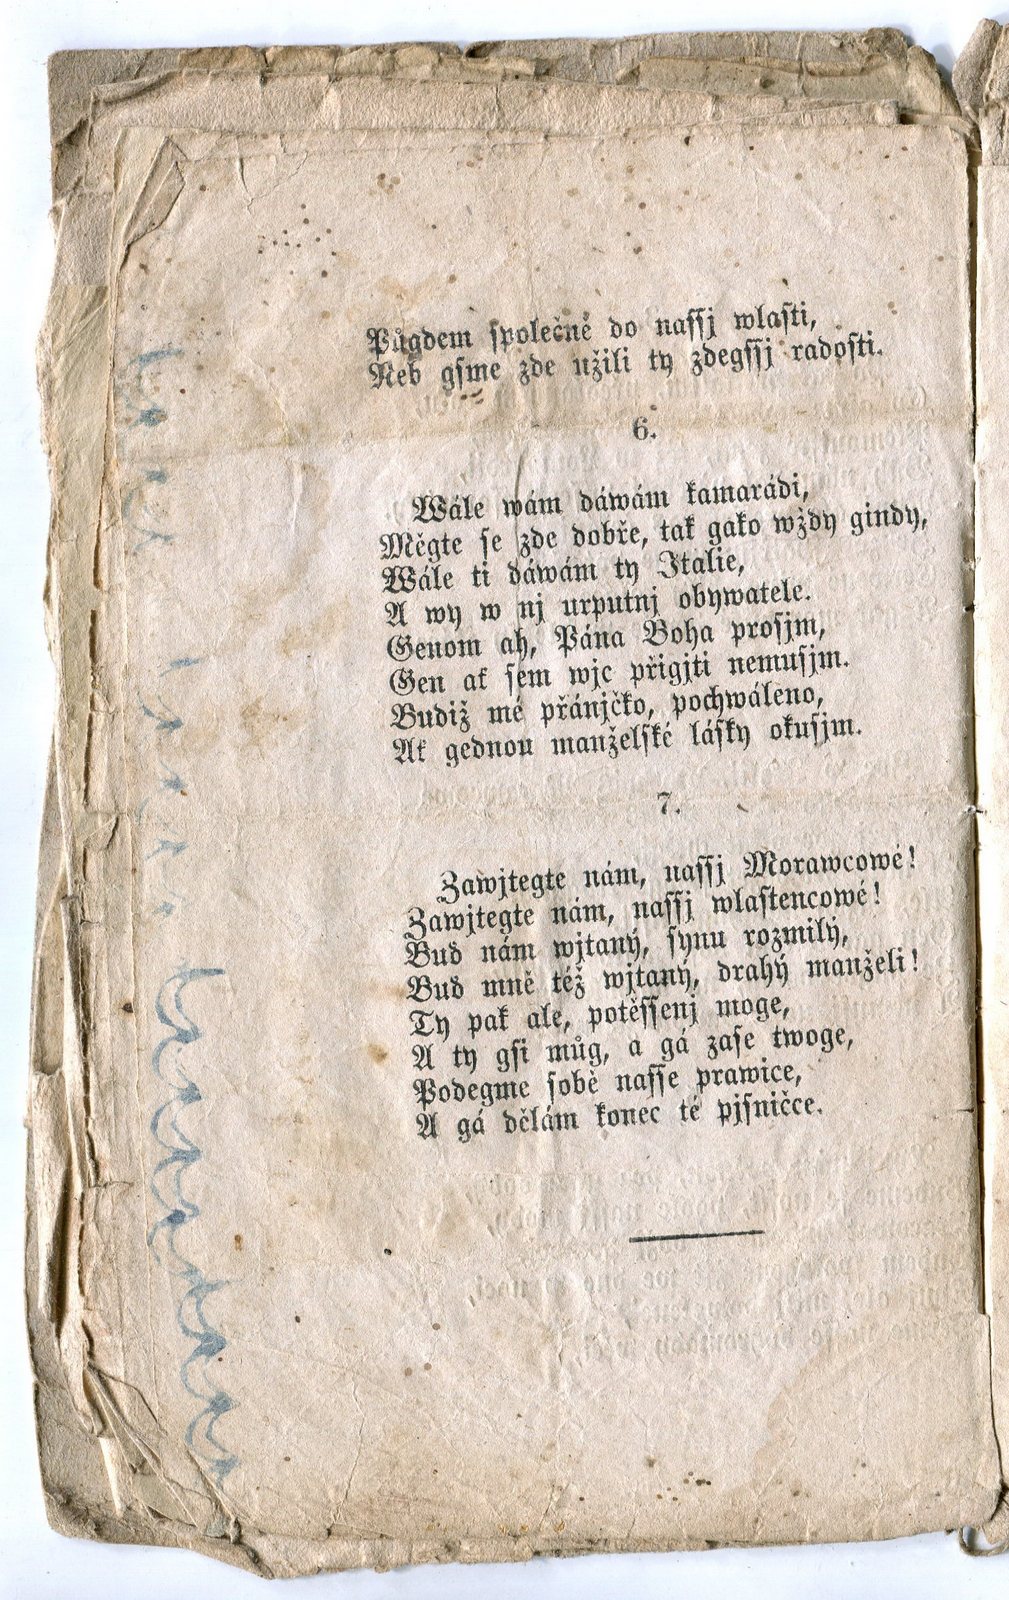 Půgdem společně do nassj wlasti,
Neb gsme zde užili ty zdegssj radosti.
6.
Wále wám dáwám kamarádi,
Měgte se zde dobře, tak gako wždy gindy,
Wále ti dáwám ty Italie,
A wy w nj urputnj obywatele.
Genom ah, Pána Boha prosjm,
Gen ať sem wjc přigjti nemusjm.
Budiž mé přánjčko, pochwáleno,
Ať gednou manželské lásky okusjm.
7.
Zawjtegte nám, nassj Morawcowé!
Zawjtegte nám, nassj wlastencowé!
Buď nám wjtaný, synu rozmilý,
Buď mně též wjtaný, drahý manželi!
Ty pak ale, potěssenj moge,
A ty gsi můg, a gá zase twoge,
Podegme sobě nasse prawice,
A gá dělám konec té pjsničce.